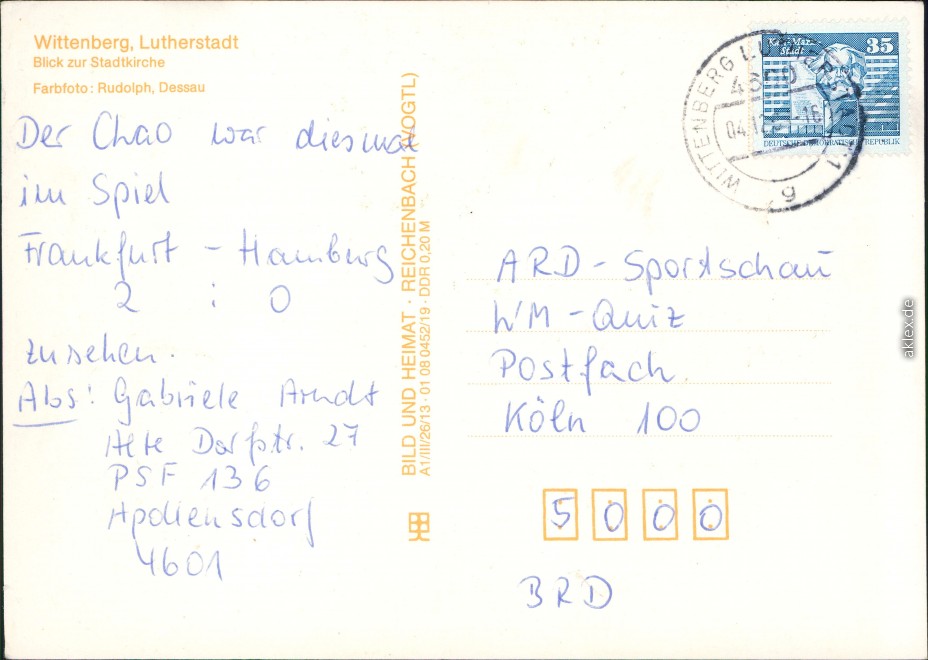 Wittenberg, Lutherstadt
Blick zur Stadtkirche
Farbfoto: Rudolph, Dessau
Der Ciao war diesmal
im Spiel
Frankfurt - Hamburg
2 : 0
zu sehen.
Abs: Gabriele Arndt
Alte Dorfstr. 27
PSF 136
Apollensdorf
4601
BILD UND HEIMAT · REICHENBACH (VOGTL)
A1/III/26/13 · 01 08 0452/19 · DDR 0,20 M
WITTENBERG LUTHERSTADT 1
4600
04.12.
g
Karl-Marx-
Stadt
35
DEUTSCHE DEMOKRATISCHE REPUBLIK
ARD - Sportschau
WM - Quiz
Postfach
Köln 100
5000
BRD
aklex.de